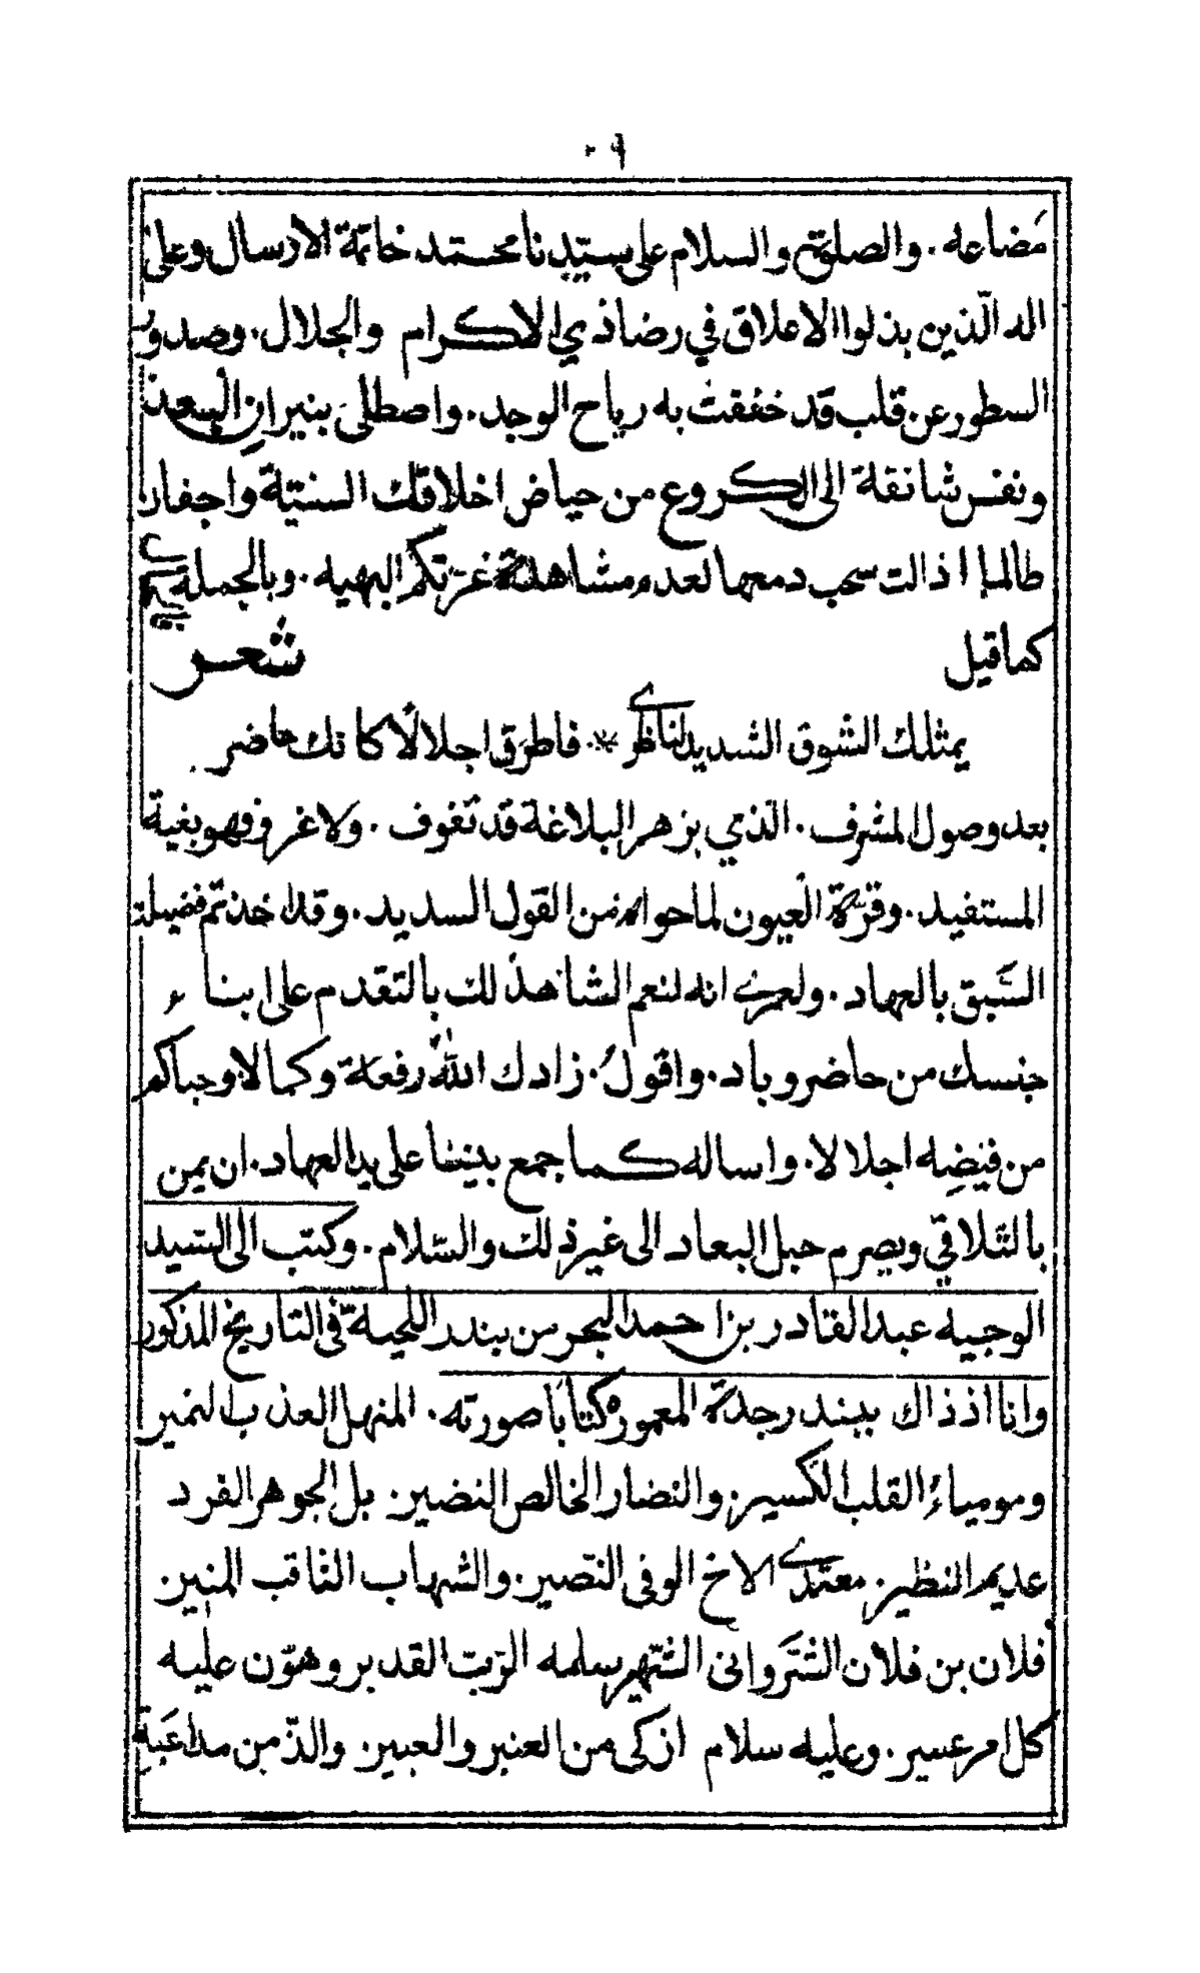 ٩٠
مضاعه ٠ والصلوة والسلام على سيّدنا محمّد خاتمة الارسال وعلى
اله الّذين بذلوا الاعلاق في رضا ذي الاكرام والجلال ٠ وصدور
السطور عن قلب قد خفقت به رياح الوجد ٠ واصطلى بنيران البعد
ونفس شائقة الى الكروع من حياض اخلاقك السنيّة واجفان
طالما اذالت سحب دمعها لعدم مشاهدة غرّتكم البهيه ٠ وبالجملة
كما قيل شعر
يمثلك الشوق الشديد لناظري * فاطرق اجلالًا كانك حاضر
بعد وصول المشرف ٠ الّذي بزهر البلاغة قد تفوف ٠ ولا غرو فهو بغية
المستفيد ٠ وقرّة العيون لما حواه من القول السديد ٠ وقد اخذتم فضيلة
السَبق بالعهاد ٠ ولعمري انه لنعم الشاهد لك بالتقدم على ابناء
جنسك من حاضر وباد ٠ واقولُ ٠ زادك اللهُ رفعة وكمالا وحباكم
من فيضِه اجلالا ٠ واساله كما جمع بيننا على يد العهاد ٠ ان يمن
بالتّلاقي ويصرم حبل البعاد الى غير ذلك والسّلام ٠ وكتب الى السّيد
الوجيه عبد القادر بن احمد البحر من بندر اللحيّة في التاريخ المذكور
وانا اذ ذاك ببندر جدة المعموره كتابًا صورته ٠ المنهل العذب النمير
ومومياءُ القلب الكسير ٠ والنضار الخالص النضير ٠ بل الجوهر الفرد
عديم النظير ٠ معتمدي الاخ الوفى النّصير ٠ والشهاب الثاقب المنير
فلان بن فلان الشَرواني الشهير سلمه الرّبّ القدير وهوّن عليه
كل امر عسير ٠ وعليه سلام ازكى من العنبر والعبير والذّ من مداعَبةِ